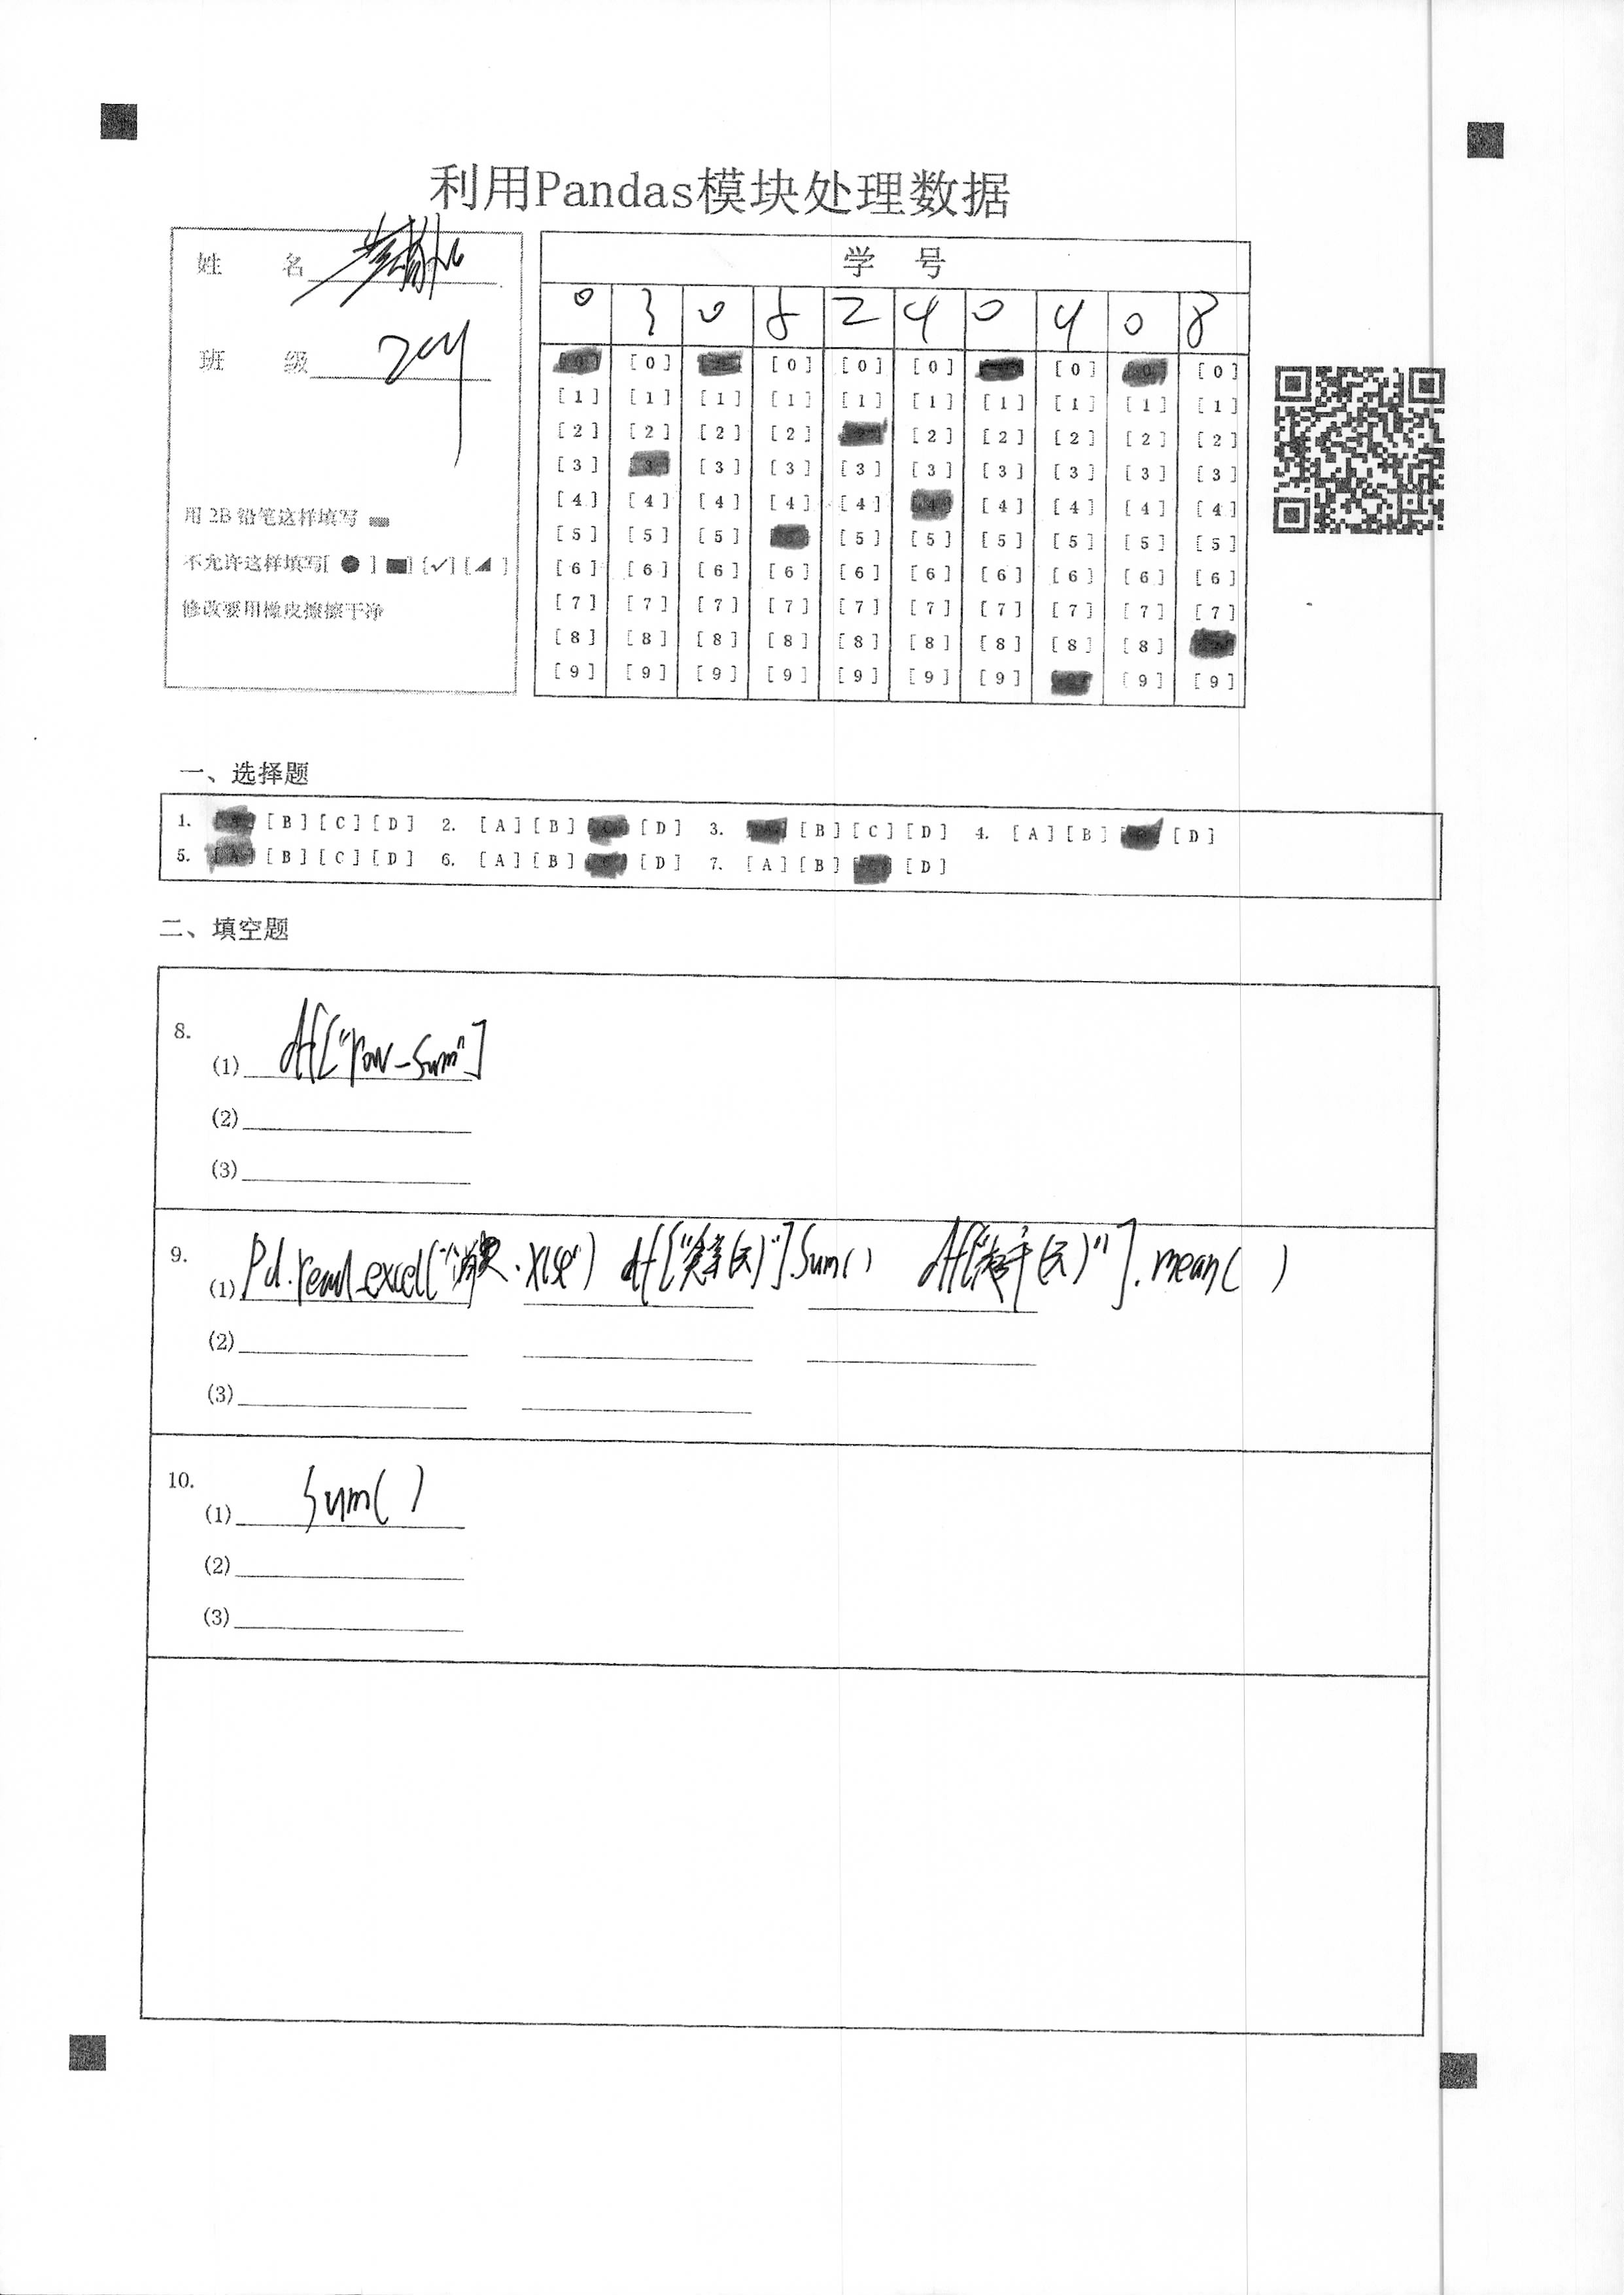 利用Pandas模块处理数据
姓 名
班 级 204
用 2B 铅笔这样填写
不允许这样填写[ ● ] [■] [✓] [◢ ]
修改要用橡皮擦擦干净
学 号
0 3 0 5 2 4 0 4 0 8
[0] [0] [0] [0] [0] [0]
[1] [1] [1] [1] [1] [1] [1] [1] [1] [1]
[2] [2] [2] [2] [2] [2] [2] [2] [2]
[3] [3] [3] [3] [3] [3] [3] [3] [3] [3]
[4] [4] [4] [4] [4] [4] [4] [4] [4] [4]
[5] [5] [5] [5] [5] [5] [5] [5] [5]
[6] [6] [6] [6] [6] [6] [6] [6] [6] [6]
[7] [7] [7] [7] [7] [7] [7] [7] [7] [7]
[8] [8] [8] [8] [8] [8] [8] [8] [8]
[9] [9] [9] [9] [9] [9] [9] [9] [9]
一、选择题
1. [A] [B] [C] [D] 2. [A] [B] [C] [D] 3. [A] [B] [C] [D] 4. [A] [B] [D]
5. [A] [B] [C] [D] 6. [A] [B] [C] [D] 7. [A] [B] [D]
二、填空题
8.
(1) df["row_sum"]
(2)
(3)
9.
(1) Pd.read_excel( ) df[ ].sum() df[ ].mean( )
(2)
(3)
10.
(1) Sum( )
(2)
(3)